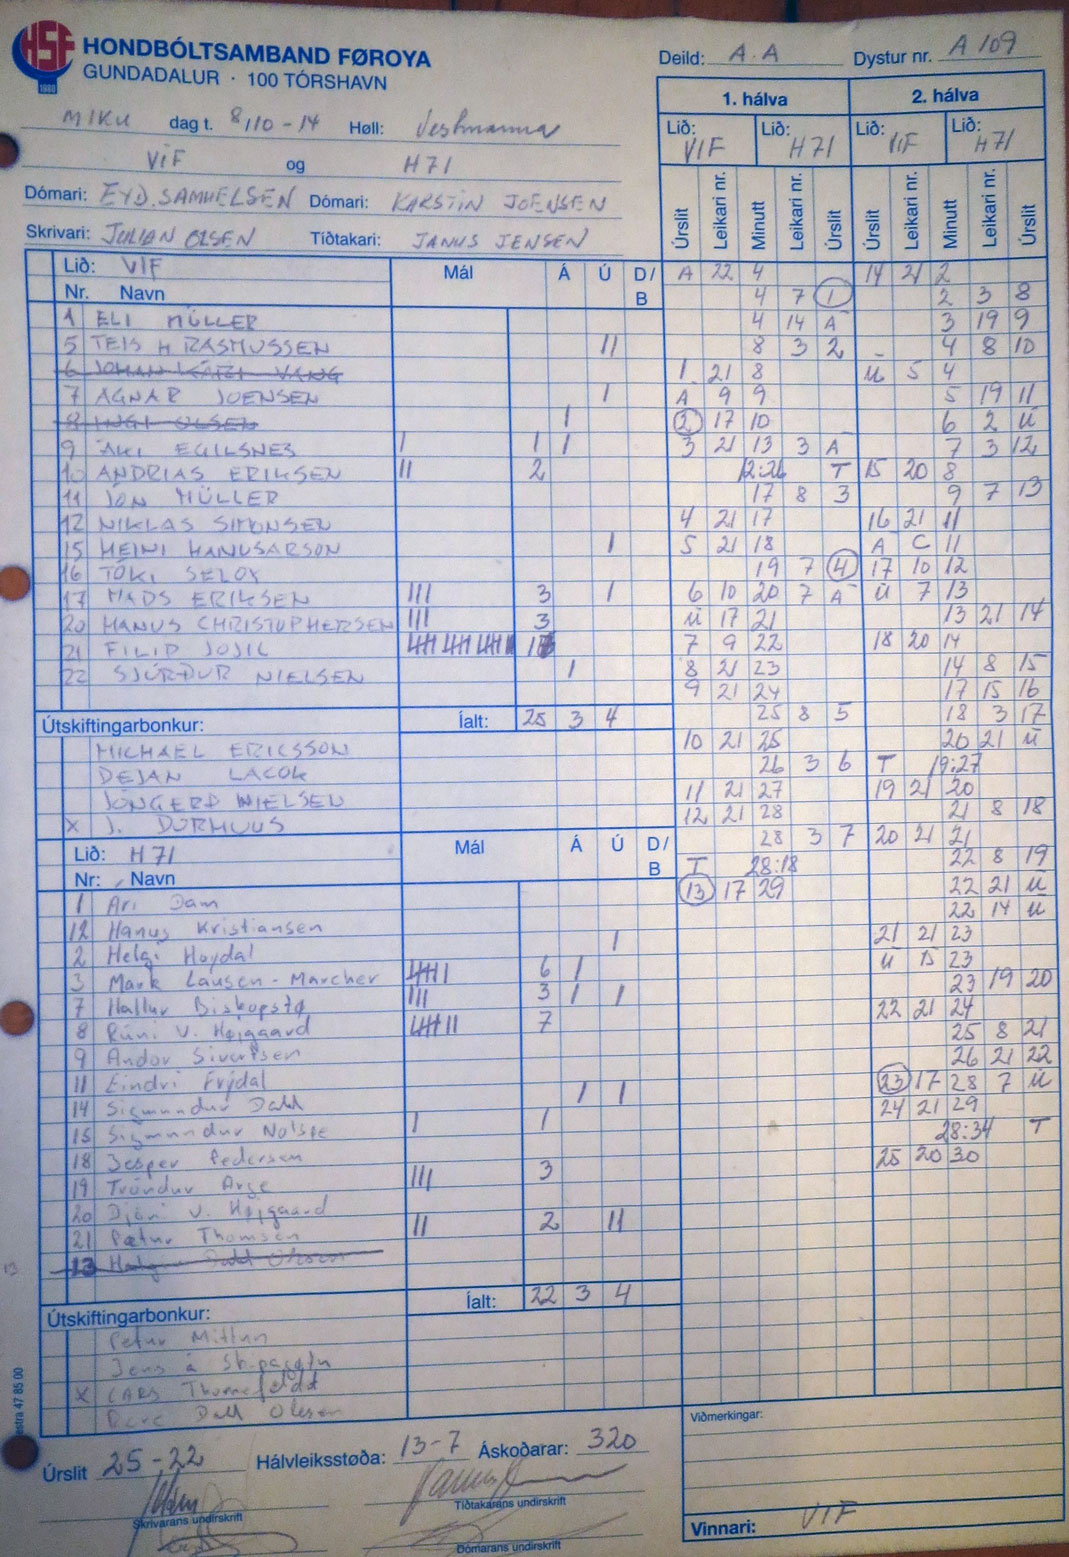 HSF
1980
HONDBÓLTSAMBAND FØROYA
GUNDADALUR · 100 TÓRSHAVN
Deild: A.A Dystur nr. A 109
MIKU dag t. 8/10-14 Høll: Vestmanna
VÍF og H71
Dómari: EYÐ. SAMUELSEN Dómari: KARSTIN JOENSEN
Skrivari: JULIAN OLSEN Tíðtakari: JANUS JENSEN
1. hálva 2. hálva
Lið: VIF Lið: H71 Lið: VIF Lið: H71
Úrslit Leikari nr. Minutt Leikari nr. Úrslit Úrslit Leikari nr. Minutt Leikari nr. Úrslit
Lið: VIF Mál Á Ú D/B
Nr. Navn
1 ELI MÜLLER
5 TEIS H RASMUSSEN II
6 JOHAN KÁRI VANG
7 AGNAR JOENSEN I
8 INGI OLSEN I
9 ÁKI EGILSNES I 1 I
10 ANDRIAS ERIKSEN II 2
11 JÓN MÜLLER
12 NIKLAS SIMONSEN
15 HEINI HANUSARSON I
16 TÓKI SELOY
17 MADS ERIKSEN III 3 I
20 HANUS CHRISTOPHERSEN III 3
21 FILIP JOJIC
22 SJÚRÐUR NIELSEN I
Útskiftingarbonkur: Íalt: 25 3 4
MICHAEL ERICSSON
DEJAN LACOK
JÓNGERÐ NIELSEN
X J. DORHUUS
Lið: H71 Mál Á Ú D/B
Nr: Navn
1 Ari Dam
12 Hanus Kristiansen
2 Helgi Hoydal I
3 Mark Lausen-Marcher 6 I
7 Hallur Biskopstø III 3 I I
8 Rúni V. Højgaard 7
9 Andor Sivertsen
11 Eindri Frýdal
14 Sigmundur Dall I I
15 Sigmundur Nolsøe I 1
18 Jesper Pedersen
19 Tróndur Arge III 3
20 Djóni V. Højgaard
21 Pætur Thomsen II 2 II
13
Útskiftingarbonkur: Íalt: 22 3 4
Petur Mittun
Jens á
X LARS
Dall Olsen
A 22 4
4 7 1
4 14 A
8 3 2
1 21 8
A 9 9
2 17 10
3 21 13 3 A
12:26 T
17 8 3
4 21 17
5 21 18
19 7 4
6 10 20 7 A
Ú 17 21
7 9 22
8 21 23
9 21 24
25 8 5
10 21 25
26 3 6
11 21 27
12 21 28
28 3 7
T 28:18
13 17 29
14 21 2
2 3 8
3 19 9
4 8 10
Ú 5 4
5 19 11
6 2 Ú
7 3 12
15 20 8
9 7 13
16 21 11
A C 11
17 10 12
Ú 7 13
13 21 14
18 20 14
14 8 15
17 15 16
18 3 17
20 21 Ú
T 19:27
19 21 20
21 8 18
20 21 21
22 8 19
22 21 Ú
22 14 Ú
21 21 23
Ú 15 23
23 19 20
22 21 24
25 8 21
26 21 22
23 17 28 7 Ú
24 21 29
28:34 T
25 20 30
Viðmerkingar:
Úrslit 25-22 Hálvleiksstøða: 13-7 Áskoðarar: 320
Skrivarans undirskrift Tíðtakarans undirskrift
Dómarans undirskrift
Vinnari: VÍF
estra 47 85 00
13